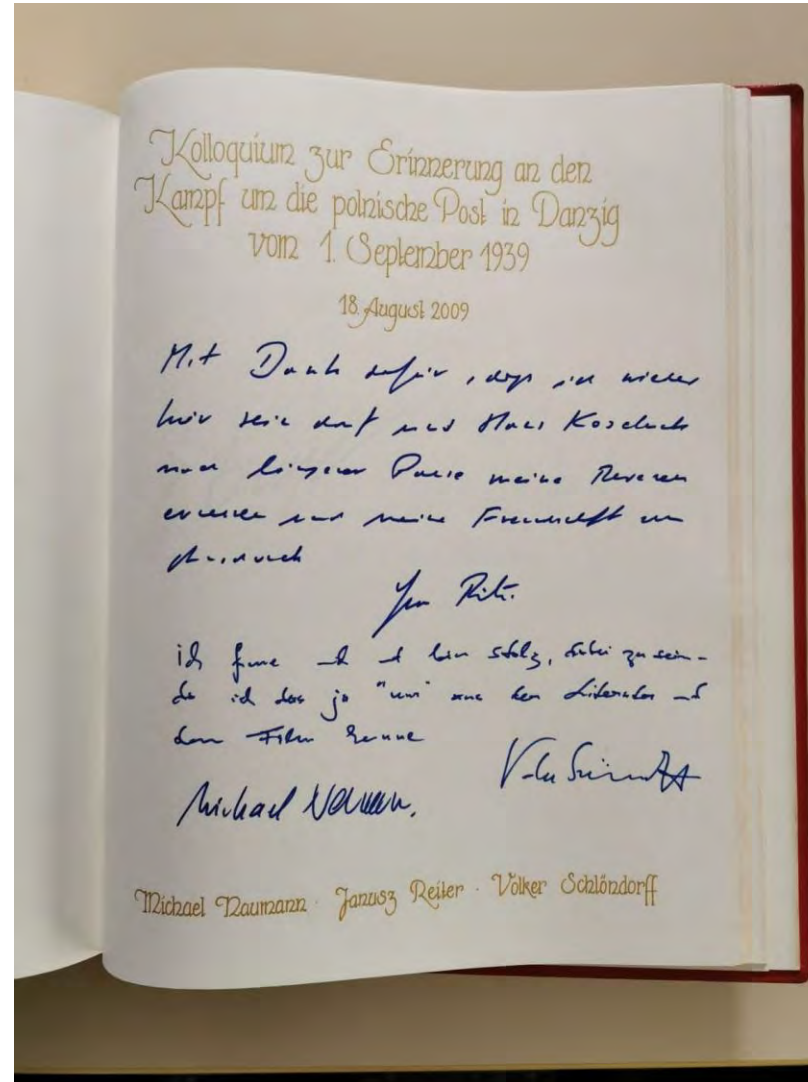 Kolloquium zur Erinnerung an den
Kampf um die polnische Post in Danzig
vom 1. September 1939
18. August 2009
Mit Dank dafür, dass ich wieder
hier sein darf und Hans Koschnick
nach längerer Pause meine Reverenz
erweisen und meine Freundschaft
ich freue mich und bin stolz, dabei zu sein -
da ich das ja "nur" aus der Literatur und
dem Film kenne
Michael Naumann.
Michael Naumann · Janusz Reiter · Volker Schlöndorff